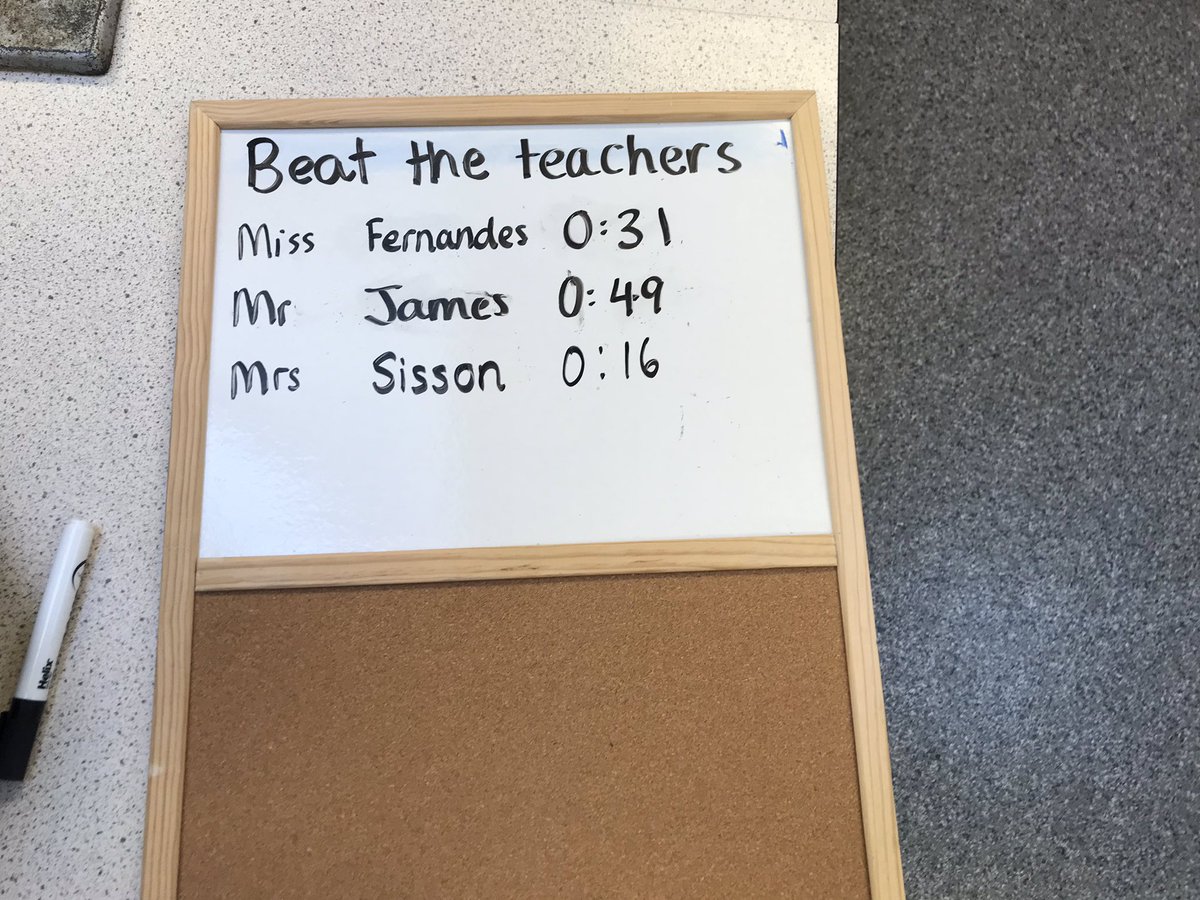 Beat the teachers
Miss Fernandes 0:31
Mr James 0:49
Mrs Sisson 0:16
Helix